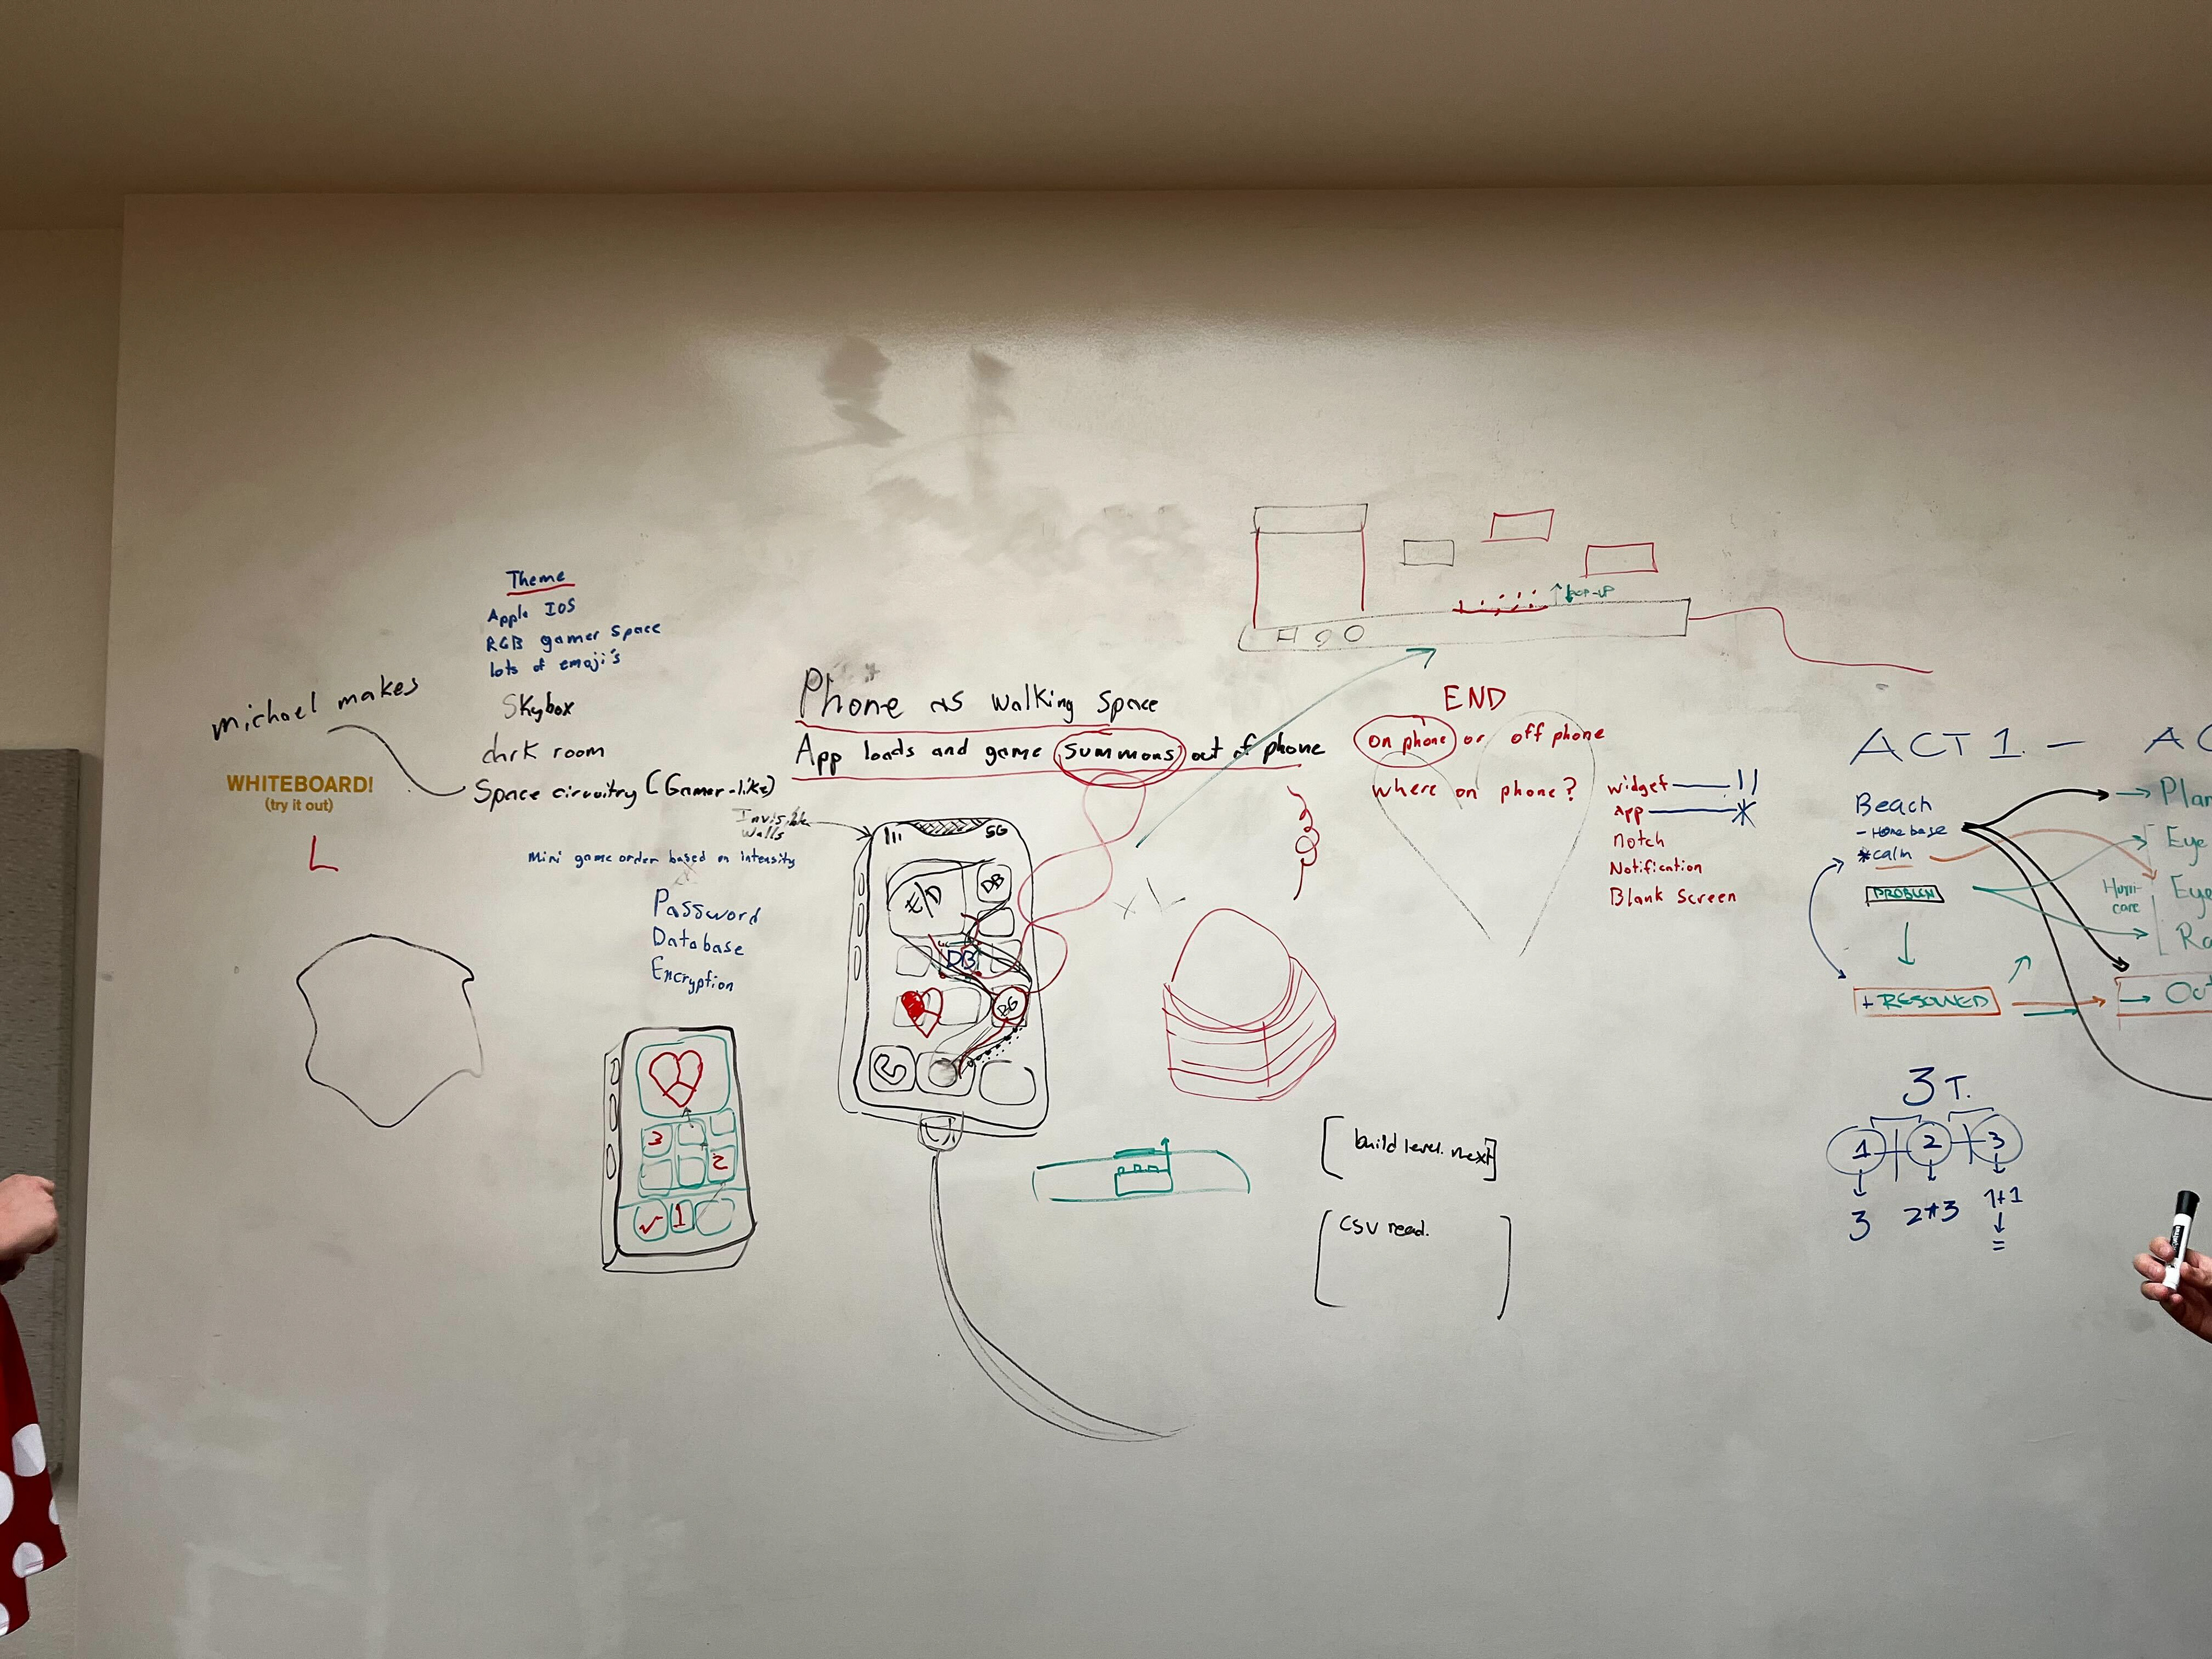 Theme
Apple IOS
RGB gamer space
lots of emoji's
Skybox
dark room
Space circuitry (Gamer-like)
michael makes
WHITEBOARD!
(try it out)
L
Invisible
walls
Mini game order based on intensity
Password
Database
Encryption
3
2
1
Phone as walking space
App loads and game summons out of phone
5G
DB
DB
POP-UP
END
on phone or off phone
where on phone?
widget
App
Notch
Notification
Blank Screen
build level. next]
CSV read.
ACT 1. -
Beach
- Home base
*calm
PROBLEM
+ RESOLVED
Eye
3 T.
1 2 3
3 2*3 1+1
=